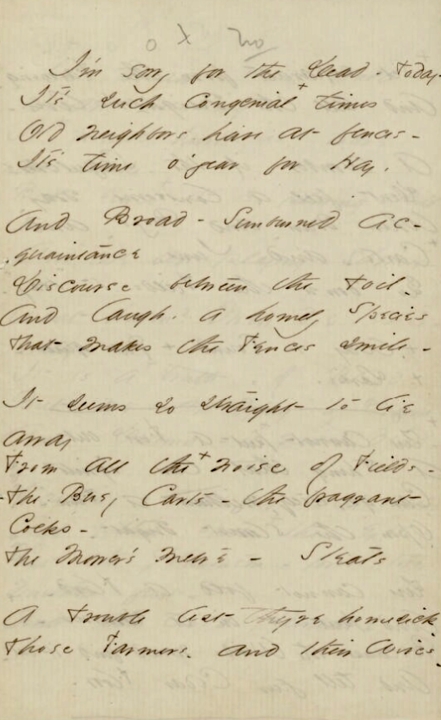 I'm sorry for the Dead - Today -
It's such Congenial + times
Old neighbors have at fences -
It's time o' year for Hay.
And Broad - Sunburned Ac-
quaintance
Discourse between the Toil -
And laugh. a homely species
That makes the Fences smile -
It seems so straight to lie
away
From all the + noise of Fields -
The Busy Carts - the fragrant
Cocks -
The Mower's metre - Steals
A trouble lest they're homesick
Those Farmers. and their Wives